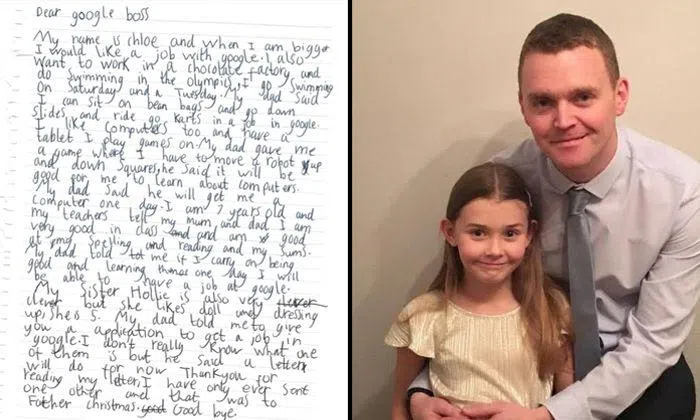 Dear google boss
My name is chloe and when I am bigger
I would like a job with google. I also
want to work in a chocolate factory and
do swimming in the olympics. I go swimming
on Saturday and a Tuesday. My dad said
I can sit on bean bags and go down
slides and ride go karts in a job in google.
I like computers too and have a
tablet I play games on. My dad gave me
a game where I have to move a robot up
and down squares, he said it will be
good for me to learn about computers.
My dad said he will get me a
computer one day. I am 7 years old and
my teachers tell my mum and dad I am
very good in class and am good
at my spelling and reading and my sums.
My dad told me if I carry on being
good and learning one day I will
be able to have a job at google.
My sister Hollie is also very
clever but she likes doll and dressing
up, she is 5. My dad told me to give
you a application to get a job in
google. I don't really know what one
of them is but he said a letter
will do for now. Thankyou for
reading my letter, I have only ever sent
one other and that was to
Father christmas. Good bye.